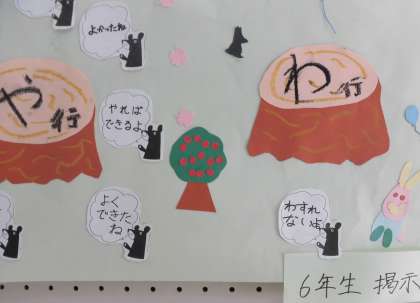 よかったね
や行
やれば
できるよ
よく
できた
ね
わ行
わすれ
ないよ
6年生 掲示